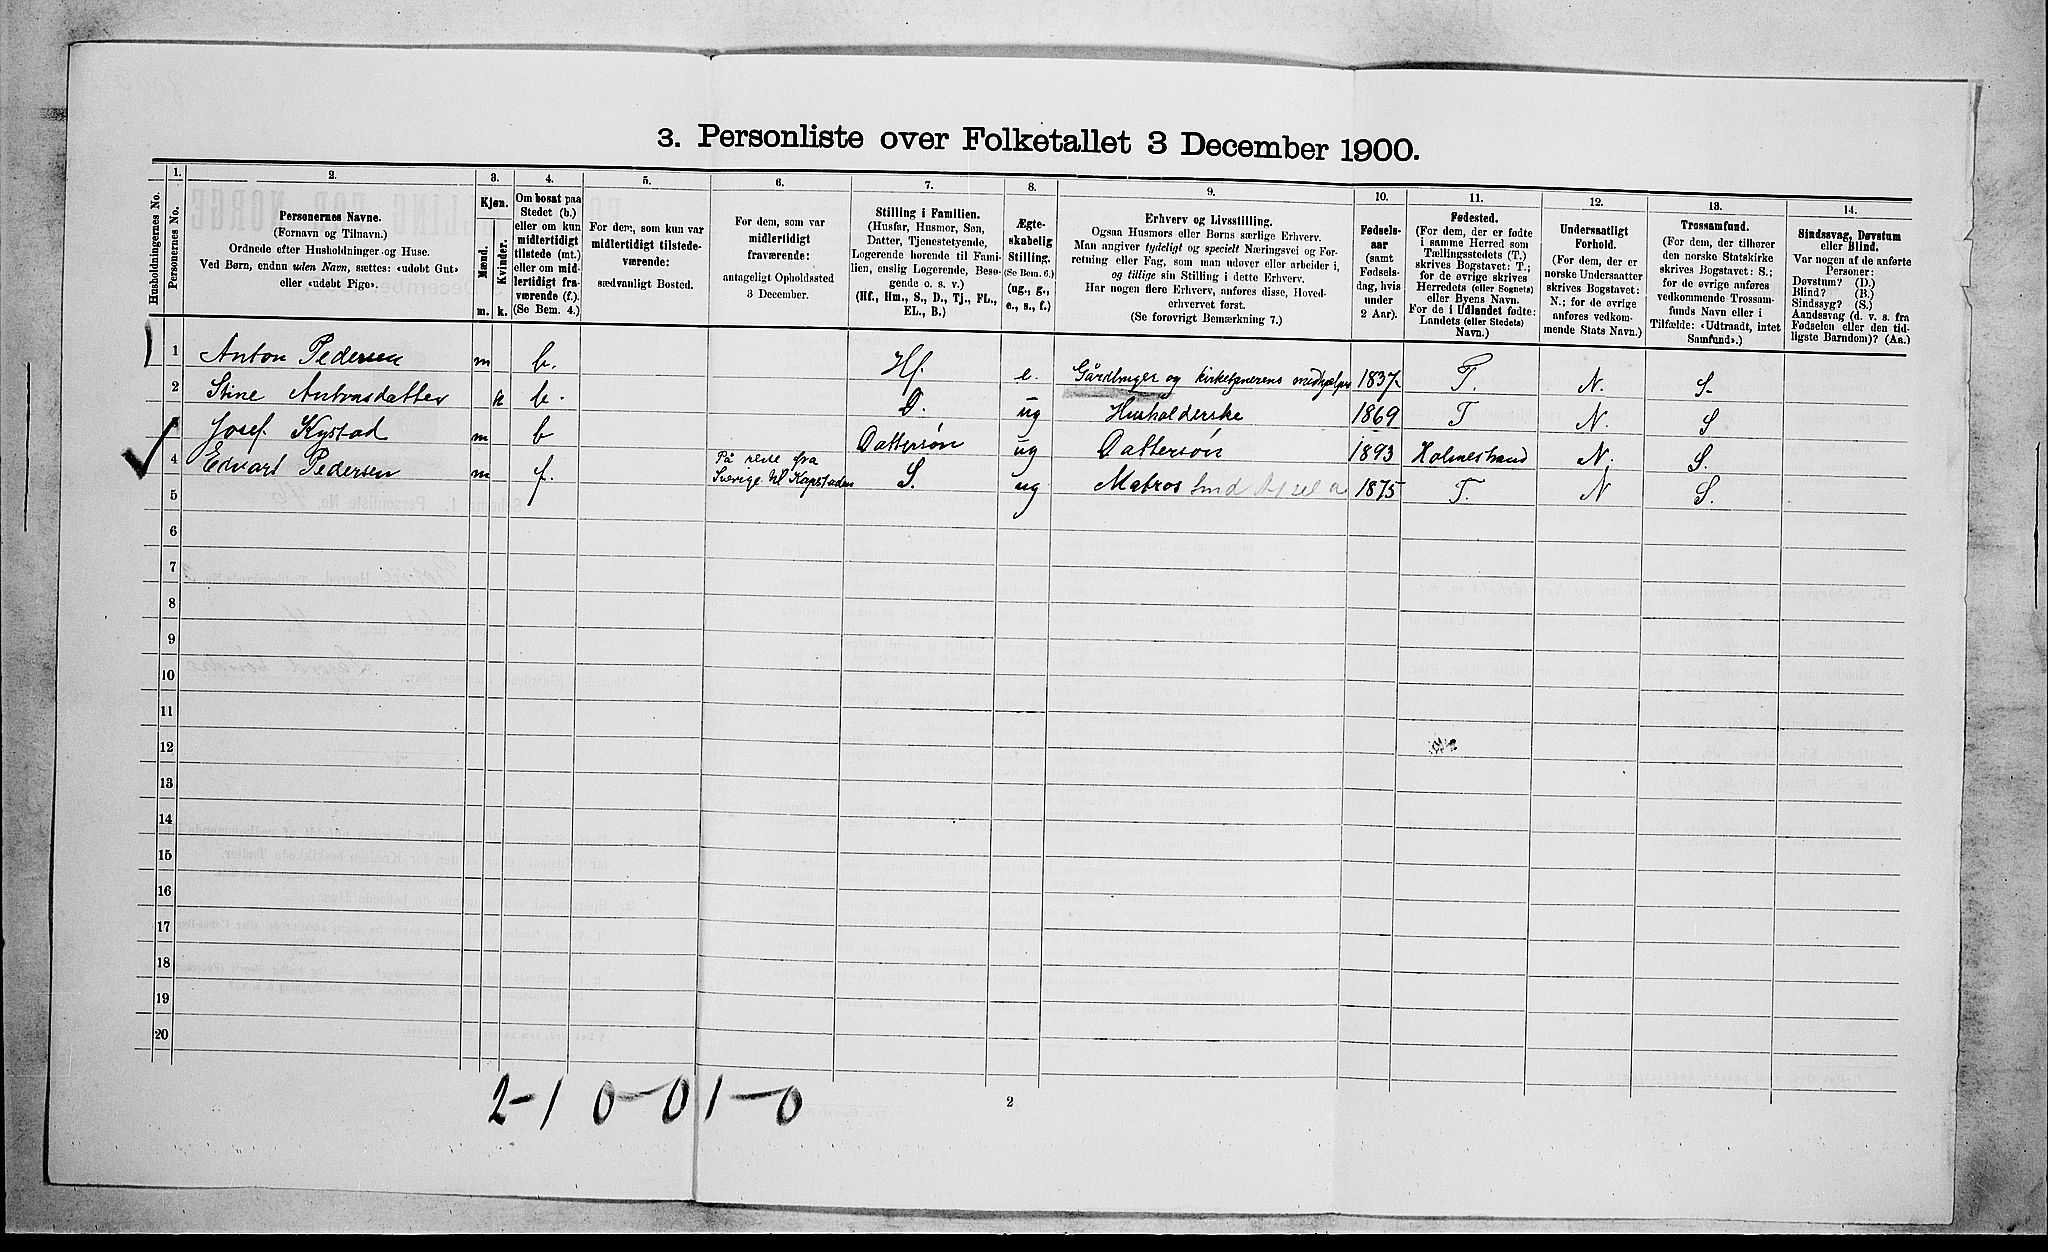 3. Personliste over Folketallet 3 December 1900.
Husholdningernes No.
1.
Personernes No.
2.
Personernes Navne.
(Fornavn og Tilnavn.)
Ordnede efter Husholdninger og Huse.
Ved Børn, endnu uden Navn, sættes: «udøbt Gut»
eller «udøbt Pige».
3.
Kjøn.
Mænd.
Kvinder.
m.
k.
4.
Om bosat paa
Stedet (b.)
eller om kun
midlertidigt
tilstede (mt.)
eller om mid-
lertidigt fra-
værende (f.).
(Se Bem. 4.)
5.
For dem, som kun var
midlertidigt tilstede-
værende:
sædvanligt Bosted.
6.
For dem, som var
midlertidigt
fraværende:
antageligt Opholdssted
3 December.
7.
Stilling i Familien.
(Husfar, Husmor, Søn,
Datter, Tjenestetyende,
Logerende hørende til Fami-
lien, enslig Logerende, Besø-
gende o. s. v.)
(Hf., Hm., S., D., Tj., FL.,
EL., B.)
8.
Ægte-
skabelig
Stilling.
(Se Bem. 6.)
(ug., g.,
e., s., f.)
9.
Erhverv og Livsstilling.
Ogsaa Husmors eller Børns særlige Erhverv.
Man angiver tydeligt og specielt Næringsvei og For-
retning eller Fag, som man udøver eller arbeider i,
og tillige sin Stilling i dette Erhverv.
Har nogen flere Erhverv, anføres disse, Hoved-
erhvervet først.
(Se forøvrigt Bemærkning 7.)
10.
Fødsels-
aar
(samt
Fødsels-
dag, hvis
under
2 Aar).
11.
Fødested.
(For dem, der er fødte
i samme Herred som
Tællingsstedets (T.)
skrives Bogstavet: T.;
for de øvrige skrives
Herredets (eller Sognets)
eller Byens Navn.
For de i Udlandet fødte:
Landets (eller Stedets)
Navn.)
12.
Undersaatligt
Forhold.
(For dem, der er
norske Undersaatter
skrives Bogstavet:
N.; for de øvrige
anføres vedkom-
mende Stats Navn.)
13.
Trossamfund.
(For dem, der tilhører
den norske Statskirke
skrives Bogstavet: S.;
for de øvrige anføres
vedkommende Trossam-
funds Navn eller i
Tilfælde: «Udtraadt, intet
Samfund».)
14.
Sindssvag, Døvstum
eller Blind.
Var nogen af de anførte
Personer:
Døvstum? (D.)
Blind? (B.)
Sindssyg? (S.)
Aandssvag (d. v. s. fra
Fødselen eller den tid-
ligste Barndom)? (Aa.)
1 Anton Pedersen m b. Hf. e. Gårdbruger og kirketjenerens medhjelper 1837 T. N. S.
2 Stine Antonsdatter k b. D. ug Husholderske 1869 T N. S
3 Josef Kystad m b Dattersøn ug Dattersøn 1893 Holmestrand N. S.
4 Edvart Pedersen m f. På reise fra
Sverige til Kapstaden S. ug Matros 1875 T. N S.
5
6
7
8
9
10
11
12
13
14
15
16
17
18
19
20
2-1 0-0 1-0
2